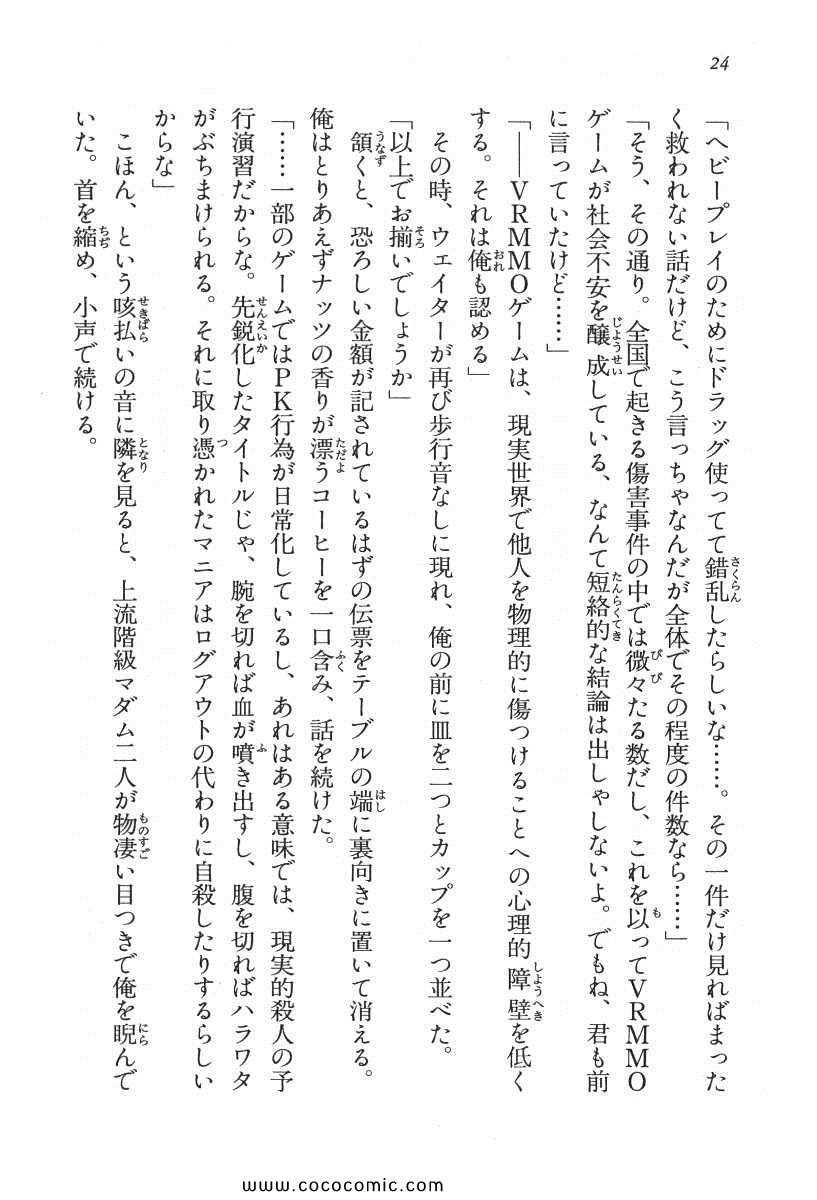 24
「ヘビープレイのためにドラッグ使ってて錯乱したらしいな……。その一件だけ見ればまった
く救われない話だけど、こう言っちゃなんだが全体でその程度の件数なら……」
「そう、その通り。全国で起きる傷害事件の中では微々たる数だし、これを以ってVRMMO
ゲームが社会不安を醸成している、なんて短絡的な結論は出しゃしないよ。でもね、君も前
に言っていたけど……」
「――VRMMOゲームは、現実世界で他人を物理的に傷つけることへの心理的障壁を低く
する。それは俺も認める」
その時、ウェイターが再び歩行音なしに現れ、俺の前に皿を二つとカップを一つ並べた。
「以上でお揃いでしょうか」
頷くと、恐ろしい金額が記されているはずの伝票をテーブルの端に裏向きに置いて消える。
俺はとりあえずナッツの香りが漂うコーヒーを一口含み、話を続けた。
「……一部のゲームではPK行為が日常化しているし、あれはある意味では、現実的殺人の予
行演習だからな。先鋭化したタイトルじゃ、腕を切れば血が噴き出すし、腹を切ればハラワタ
がぶちまけられる。それに取り憑かれたマニアはログアウトの代わりに自殺したりするらしい
からな」
こほん、という咳払いの音に隣を見ると、上流階級マダム二人が物凄い目つきで俺を睨んで
いた。首を縮め、小声で続ける。
www.cococomic.com/